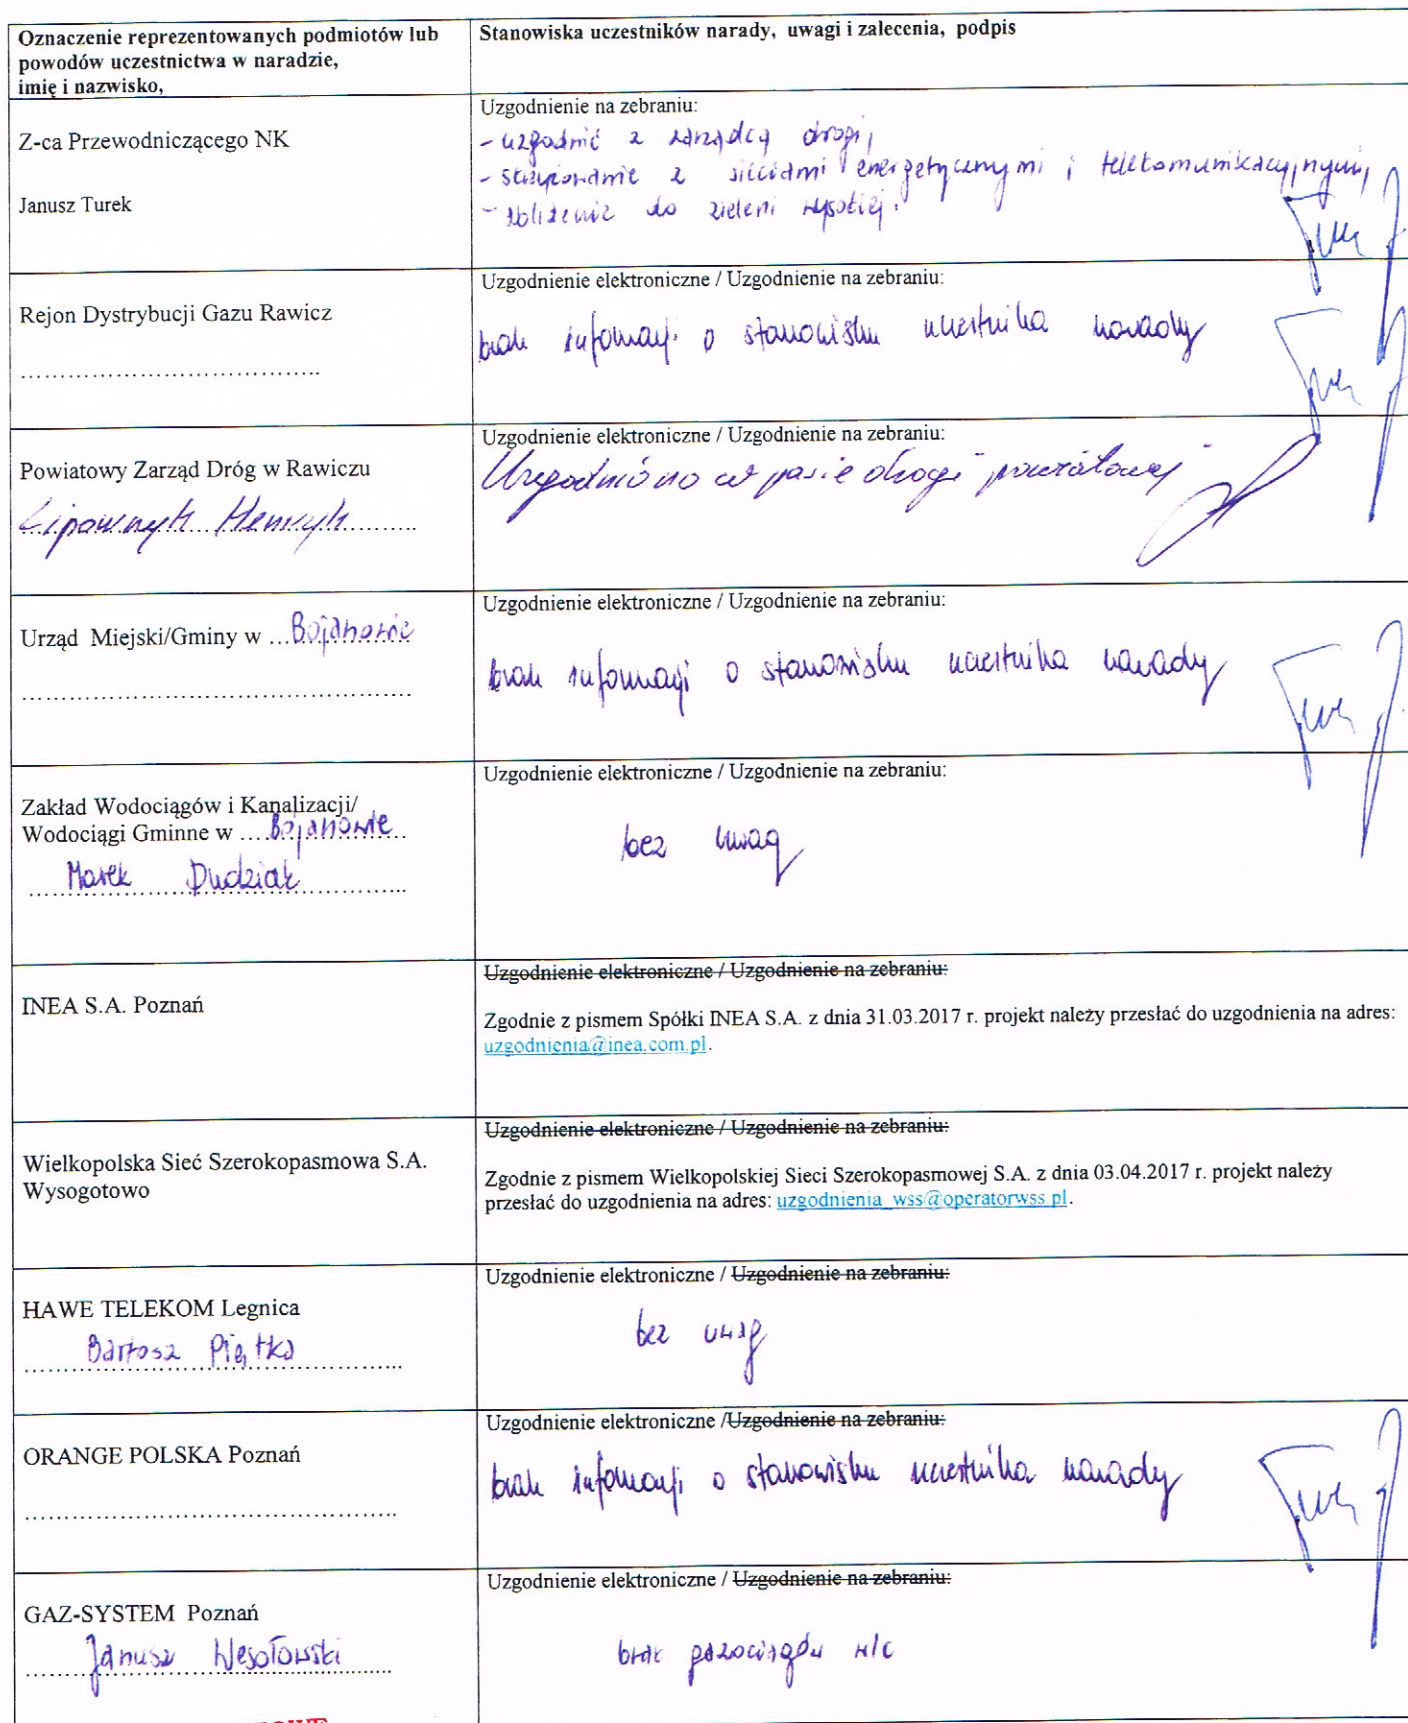 Oznaczenie reprezentowanych podmiotów lub
powodów uczestnictwa w naradzie,
imię i nazwisko,
Stanowiska uczestników narady, uwagi i zalecenia, podpis
Z-ca Przewodniczącego NK
Janusz Turek
Uzgodnienie na zebraniu:
- uzgodnić z zarządcą drogi,
- skrzyżowanie z sieciami energetycznymi i telekomunikacyjnymi,
- zbliżenie do zieleni wysokiej.
Rejon Dystrybucji Gazu Rawicz
Uzgodnienie elektroniczne / Uzgodnienie na zebraniu:
brak informacji o stanowisku uczestnika narady
Powiatowy Zarząd Dróg w Rawiczu
Henryk
Uzgodnienie elektroniczne / Uzgodnienie na zebraniu:
Uzgodniono w pasie drogi powiatowej
Urząd Miejski/Gminy w ...Bojanowie
Uzgodnienie elektroniczne / Uzgodnienie na zebraniu:
brak informacji o stanowisku uczestnika narady
Zakład Wodociągów i Kanalizacji/
Wodociągi Gminne w ....Bojanowie
Marek Dudziak
Uzgodnienie elektroniczne / Uzgodnienie na zebraniu:
bez uwag
INEA S.A. Poznań
Uzgodnienie elektroniczne / Uzgodnienie na zebraniu:
Zgodnie z pismem Spółki INEA S.A. z dnia 31.03.2017 r. projekt należy przesłać do uzgodnienia na adres:
uzgodnienia@inea.com.pl.
Wielkopolska Sieć Szerokopasmowa S.A.
Wysogotowo
Uzgodnienie elektroniczne / Uzgodnienie na zebraniu:
Zgodnie z pismem Wielkopolskiej Sieci Szerokopasmowej S.A. z dnia 03.04.2017 r. projekt należy
przesłać do uzgodnienia na adres: uzgodnienia_wss@operatorwss.pl.
HAWE TELEKOM Legnica
Bartosz Piętka
Uzgodnienie elektroniczne / Uzgodnienie na zebraniu:
bez uwag
ORANGE POLSKA Poznań
Uzgodnienie elektroniczne /Uzgodnienie na zebraniu:
brak informacji o stanowisku uczestnika narady
GAZ-SYSTEM Poznań
Janusz Wesołowski
Uzgodnienie elektroniczne / Uzgodnienie na zebraniu:
brak gazociągów w/c